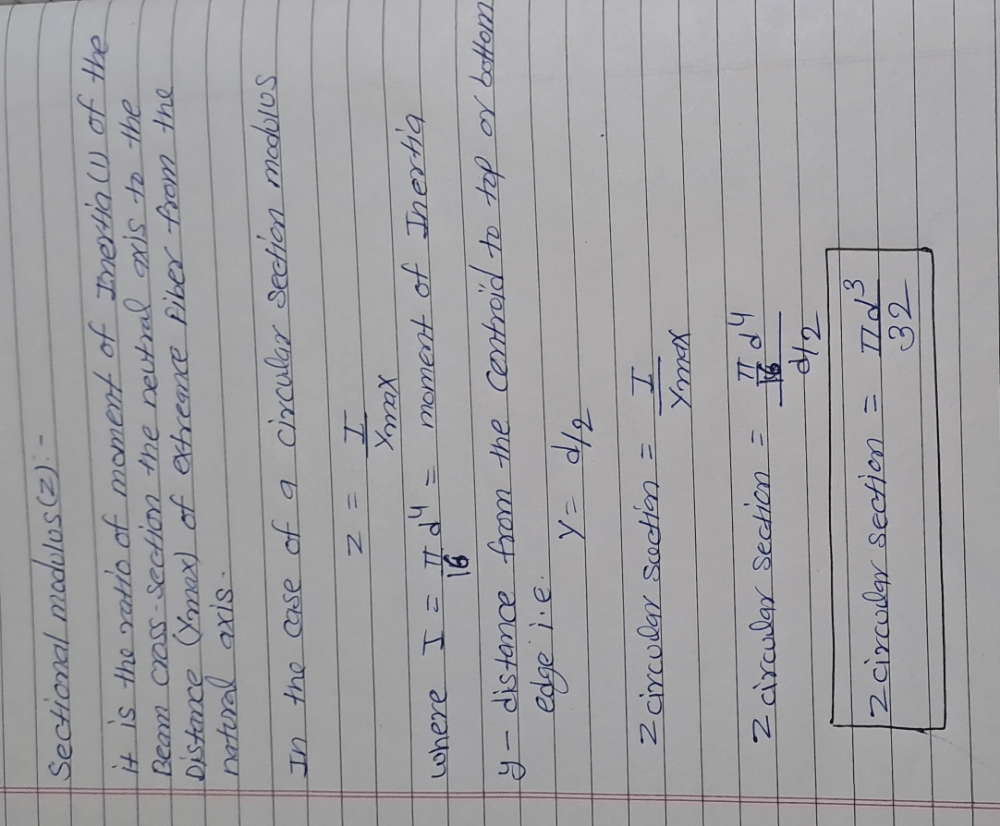 Sectional modulus(z):-
it is the ratio of moment of Inertia(I) of the
Beam cross-section the neutral axis to the
Distance (Ymax) of extreance Fiber from the
natural axis.
In the case of a circular section modulus
Z = I/Ymax
where I = π/16 d⁴ = moment of Inertia
y - distance from the centroid to top or bottom
edge i.e.
y = d/2
Z circular section = I/Ymax
Z circular section = π/16 d⁴ / d/2
Z circular section = πd³/32